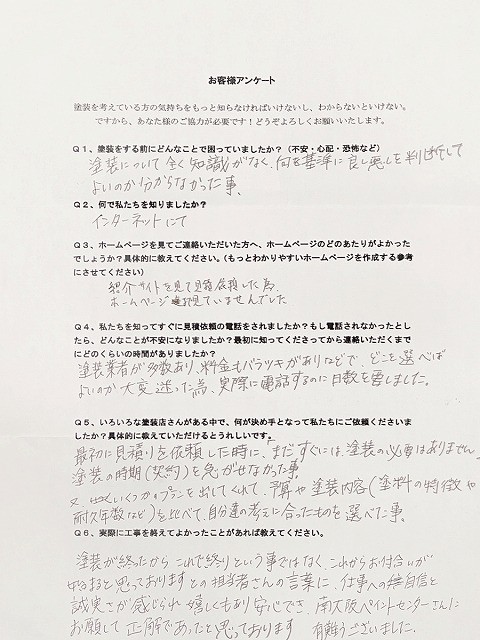 お客様アンケート
塗装を考えている方の気持ちをもっと知らなければいけないし、わからないといけない。
ですから、あなた様のご協力が必要です！どうぞよろしくお願いいたします。
Q１、塗装をする前にどんなことで困っていましたか？（不安・心配・恐怖など）
塗装について全く知識がなく、何を基準に良し悪しを判断して
よいのか分からなかった事。
Q２、何で私たちを知りましたか？
インターネットにて
Q３、ホームページを見てご連絡いただいた方へ、ホームページのどのあたりがよかった
でしょうか？具体的に教えてください。（もっとわかりやすいホームページを作成する参考
にさせてください）
紹介サイトを見て見積依頼した為、
ホームページは見ていませんでした
Q４、私たちを知ってすぐに見積依頼の電話をされましたか？もし電話されなかったとし
たら、どんなことが不安になりましたか？最初に知ってくださってから連絡いただくまで
にどのくらいの時間がありましたか？
塗装業者が多数あり、料金もバラツキがありなどで、どこを選べば
よいのか大変迷った為、実際に電話するのに日数を要しました。
Q５、いろいろな塗装店さんがある中で、何が決め手となって私たちにご依頼くださいま
したか？具体的に教えていただけるとうれしいです。
最初に見積りを依頼した時に、「まだすぐには塗装の必要はありません」
塗装の時期（契約）を急がせなかった事。
又、いくつかプランを出してくれて、予算や塗装内容（塗料の特徴や
耐久年数など）を比べて、自分達の考えに合ったものを選べた事。
Q６、実際に工事を終えてよかったことがあれば教えてください。
塗装が終ったから これで終りという事ではなく、これからお付合いが
始まると思っておりますとの担当者さんの言葉に、仕事への自信と
誠実さが感じられ 嬉しくもあり安心でき、南大阪ペイントセンターさんに
お願いして正解であったと思っております 有難うございました。